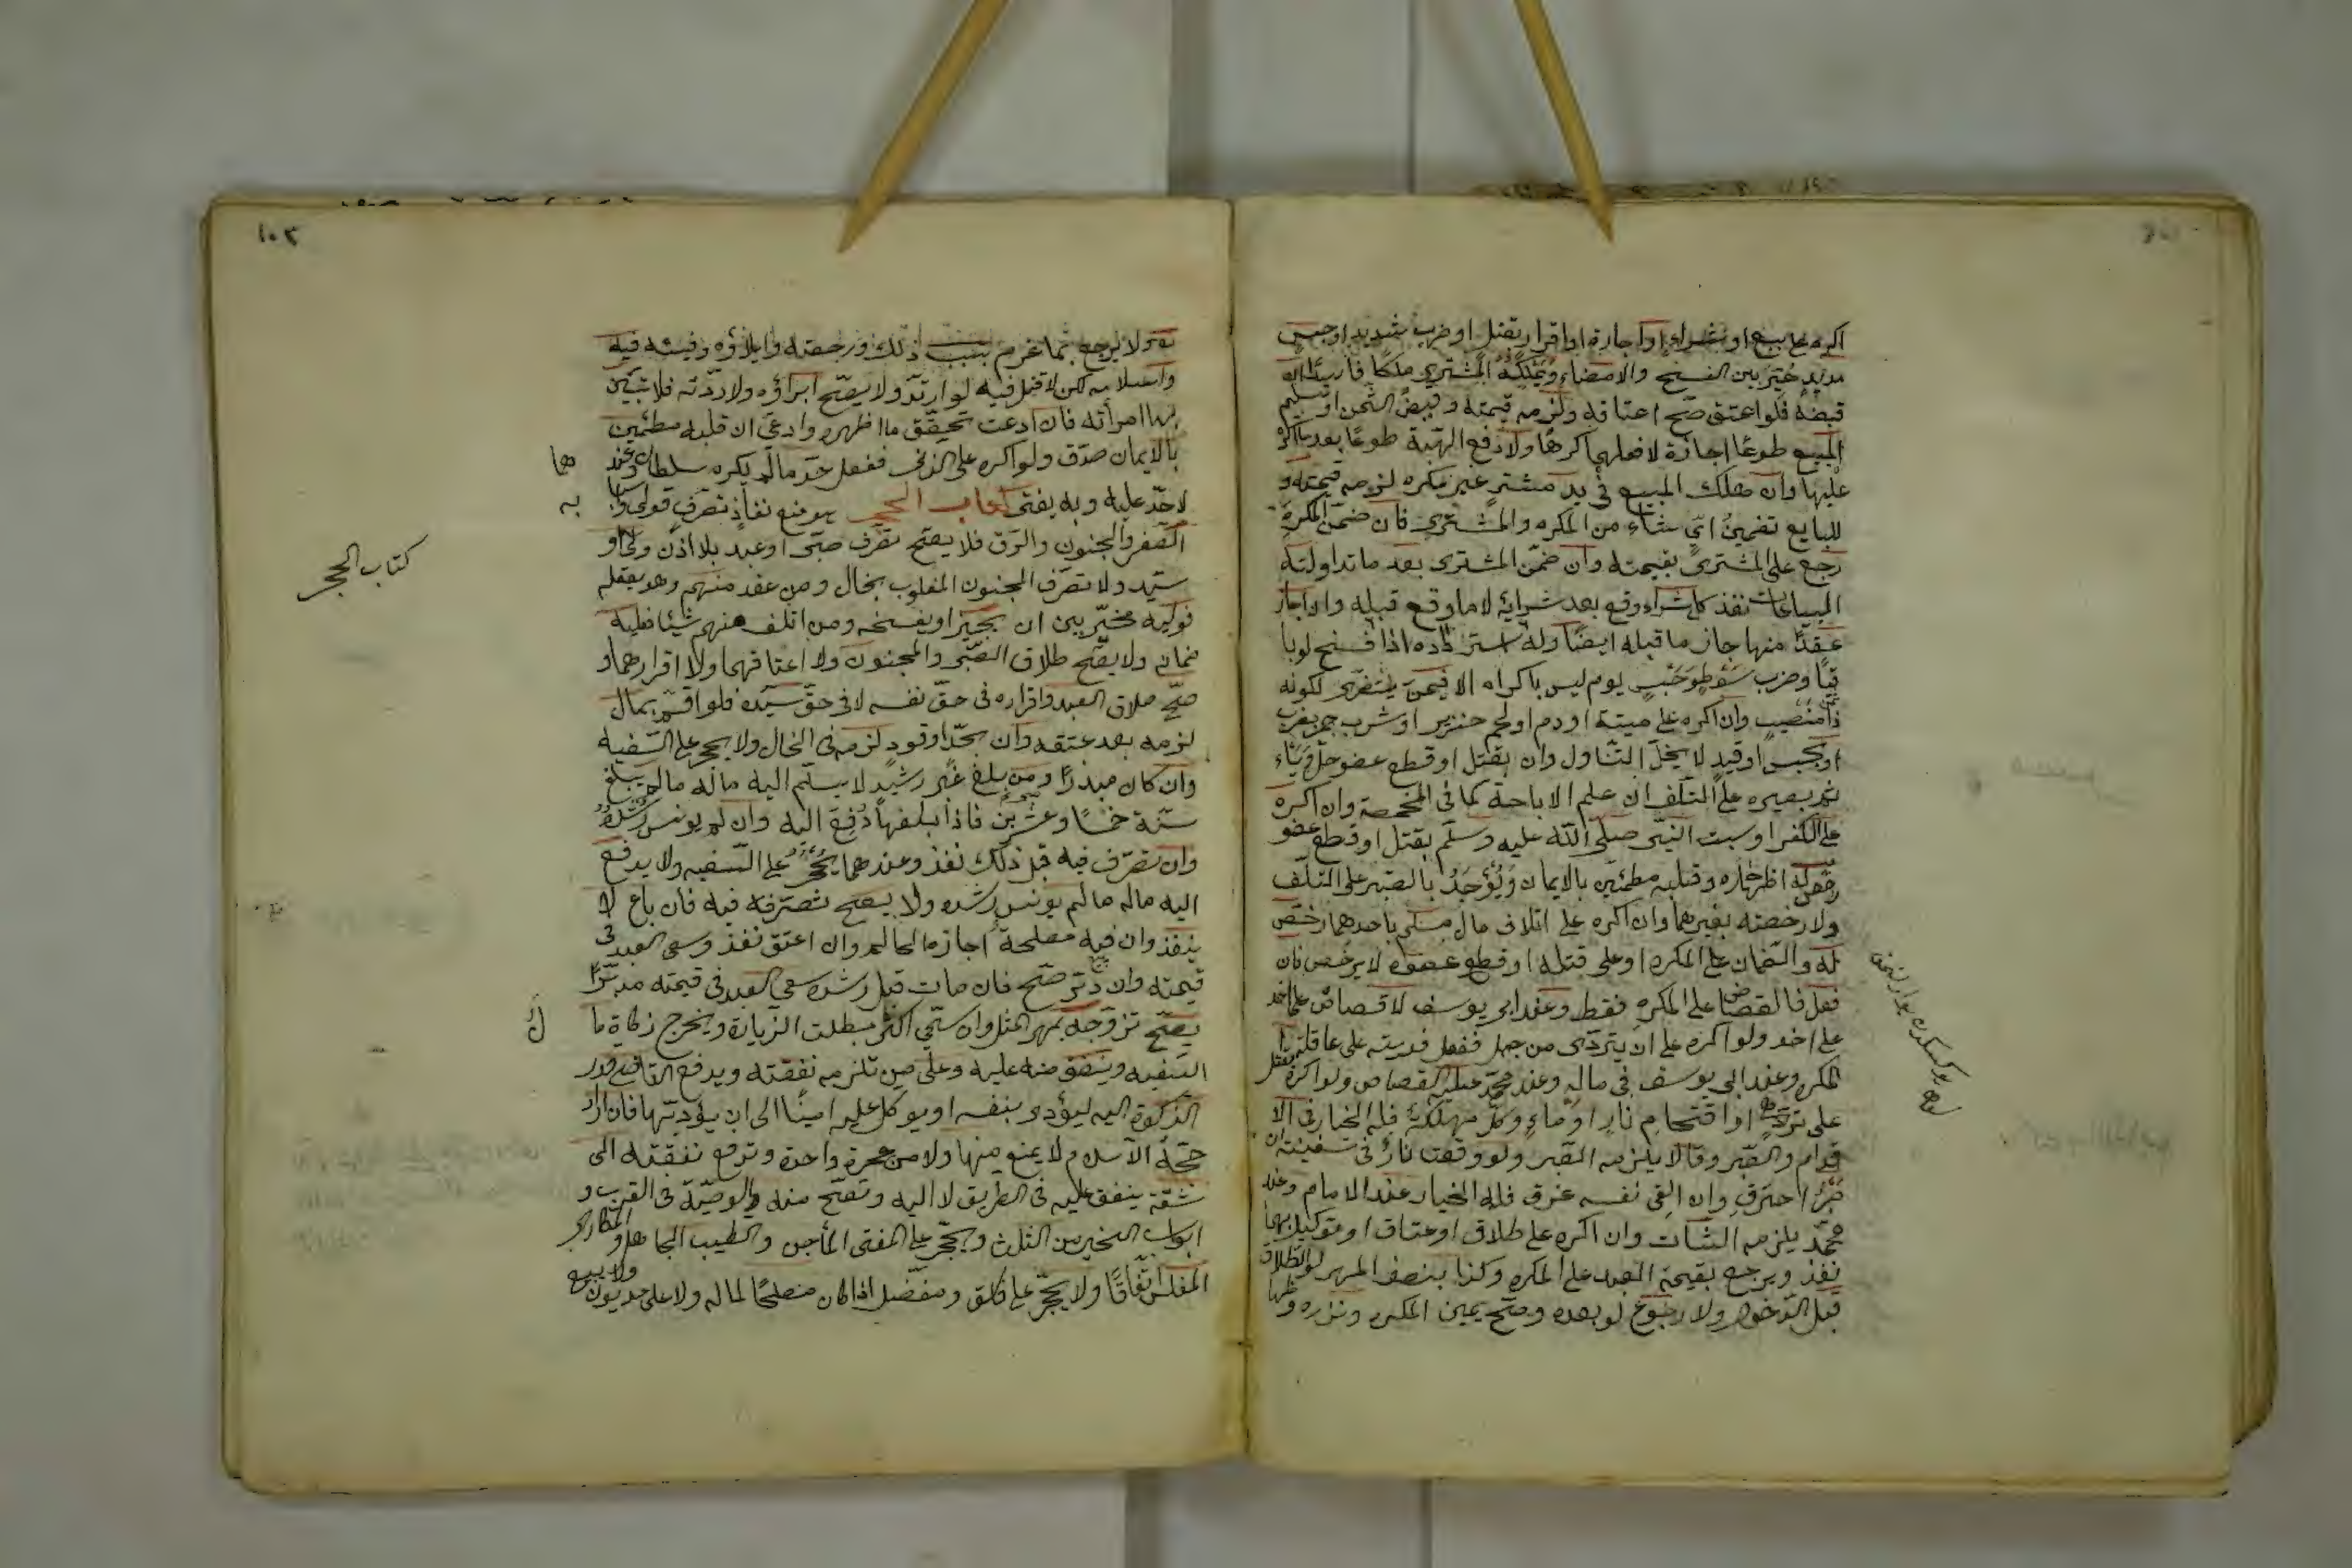 اكره على بيع او شراء او اجارة او اقرار بقتل او ضرب شديد او حبس
مديد خير بين الفسخ والامضاء ويملكه المشترى ملكا فاسدا ان
قبضه فلو اعتق صح اعتاقه ولزمه قيمته وقبض الثمن او تسليم
المبيع طوعا اجازة لا فعلهما كرها ولا دفع الهبة طوعا بعد ما اكره
عليها وان هلك المبيع فى يد مشتر غير مكره لزمه قيمته و
للبايع تضمين اى شاء من المكره والمشترى فان ضمن المكره
رجع على المشترى بقيمته وان ضمن المشترى بعد ما تداولته
البياعات نفذ كل شراء وقع بعد شرائه لا ما وقع قبله وان اجاز
عقدا منها جاز ما قبله ايضا وله استرداده اذا فسخ لو با
قيا وضرب سوط وحبس يوم ليس باكراه الا فيمن يتضرر لكونه
ذا منصب وان اكره على ميتة او دم او لحم خنزير او شرب خمر بضرب
او حبس او قيد لا يحل التناول وان بقتل او قطع عضو حل
بصبره على التلف ان علم الاباحة كما فى المخمصة وان اكره
على الكفر او سب النبى صلى الله عليه وسلم بقتل او قطع عضو
رخص له اظهاره وقلبه مطمئن بالايمان ويوجر بالصبر على التلف
ولا رخصة بغيرهما وان اكره على اتلاف مال مسلم باحدهما رخص
له والضمان على المكره او على قتله او قطع عضوه لا يرخص فان
فعل فالقصاص على المكره فقط وعند ابى يوسف لا قصاص على احد
ولو اكره على ان يتردى من جبل ففعل فديته على عاقلة
المكره وعند ابى يوسف فى ماله وعند محمد عليه القصاص ولو اكره بقتل
على ترد او اقتحام نار او ماء وكل مهلكة فله الخيار فى الا
قدام والصبر وقالا يلزمه الصبر ولو وقعت نار فى سفينة ان
صبر احترق وان القى نفسه غرق فله الخيار عند الامام وعند
محمد يلزمه الثبات وان اكره على طلاق او عتاق او توكيل بهما
نفذ ويرجع بقيمة العبد على المكره وكذا بنصف المهر لو الطلاق
قبل الدخول ولا رجوع لو بعده وصح يمين المكره ونذره وظهاره
١٠٢
ولا يرجع بما غرم بسبب ذلك ورجعته وايلاؤه وفيئه فيه
واسلامه لكن لا قتل فيه لو ارتد ولا يصح ابراؤه ولا ردته فلا تبين
بها امرأته فان ادعت تحقق ما اظهره وادعى ان قلبه مطمئن
بالايمان صدق ولو اكره على الزنى ففعل حد ما لم يكره سلطان وعند هما
لا حد عليه وبه يفتى كتاب الحجر هو منع نفاذ تصرف قولى واسبا به
الصغر والجنون والرق فلا يصح تصرف صبى او عبد بلا اذن ولى او
سيد ولا تصرف المجنون المغلوب بحال ومن عقد منهم وهو يعقله
فوليه مخير بين ان يجيز او يفسخه ومن اتلف منهم شيئا فعليه
ضمانه ولا يصح طلاق الصبى والمجنون ولا اعتاقهما ولا اقرارهما و
صح طلاق العبد واقراره فى حق نفسه لا فى حق سيده فلو اقر بمال
لزمه بعد عتقه وان بحد او قود لزمه فى الحال ولا يحجر على السفيه
وان كان مبذرا ومن بلغ غير رشيد لا يسلم اليه ماله ما لم يبلغ
سنه خمسا وعشرين فاذا بلغها دفع اليه وان لم يونس رشده
وان تصرف فيه قبل ذلك نفذ وعندهما يحجر على السفيه ولا يدفع
اليه ماله ما لم يونس رشده ولا يصح تصرفه فيه فان باع لا
ينفذ وان فيه مصلحة اجازه الحاكم وان اعتق نفذ وسعى العبد فى
قيمته وان دبر صح فان مات قبل رشده سعى العبد فى قيمته مدبرا
يصح تزوجه بمهر المثل وان سمى اكثر بطلت الزيادة ويخرج زكاة ما ل
السفيه وينفق منه عليه وعلى من تلزمه نفقته ويدفع القاضى قدر
الزكوة اليه ليؤدى بنفسه او يوكل عليه امينا الى ان يؤديها فان اراد
حجة الاسلام لا يمنع منها ولا من عمرة واحدة وتدفع نفقته الى
ثقة ينفق عليه فى الطريق لا اليه وتصح منه الوصية فى القرب و
ابواب الخير من الثلث ويحجر على المفتى الماجن والطبيب الجاهل والمكارى
المفلس اتفاقا ولا يحجر على فاسق ومغفل اذا كان مصلحا لماله ولا على مديون ولا يبيع
كتاب الحجر